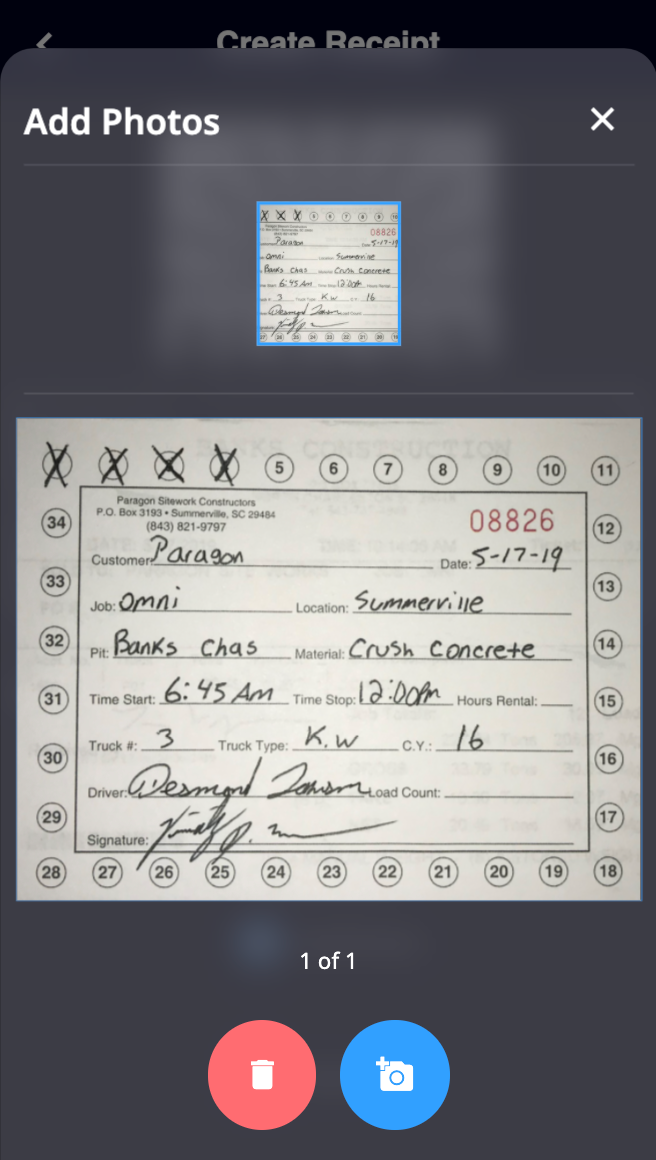 Create Receipt
Add Photos
5 6 7 8 9 10 11
Paragon Sitework Constructors
P.O. Box 3193 • Summerville, SC 29484
(843) 821-9797
08826
34 12
Customer: Paragon Date: 5-17-19
33 13
Job: Omni Location: Summerville
32 14
Pit: Banks Chas Material: Crush Concrete
31 15
Time Start: 6:45 Am Time Stop: 12:00Pm Hours Rental:
Truck #: 3 Truck Type: K.W C.Y.: 16
30 16
Driver: Desmond Load Count:
29 17
Signature:
28 27 26 25 24 23 22 21 20 19 18
1 of 1